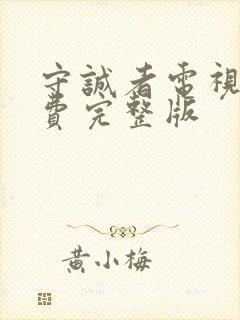 守誠者電視
費完整版
黃小梅